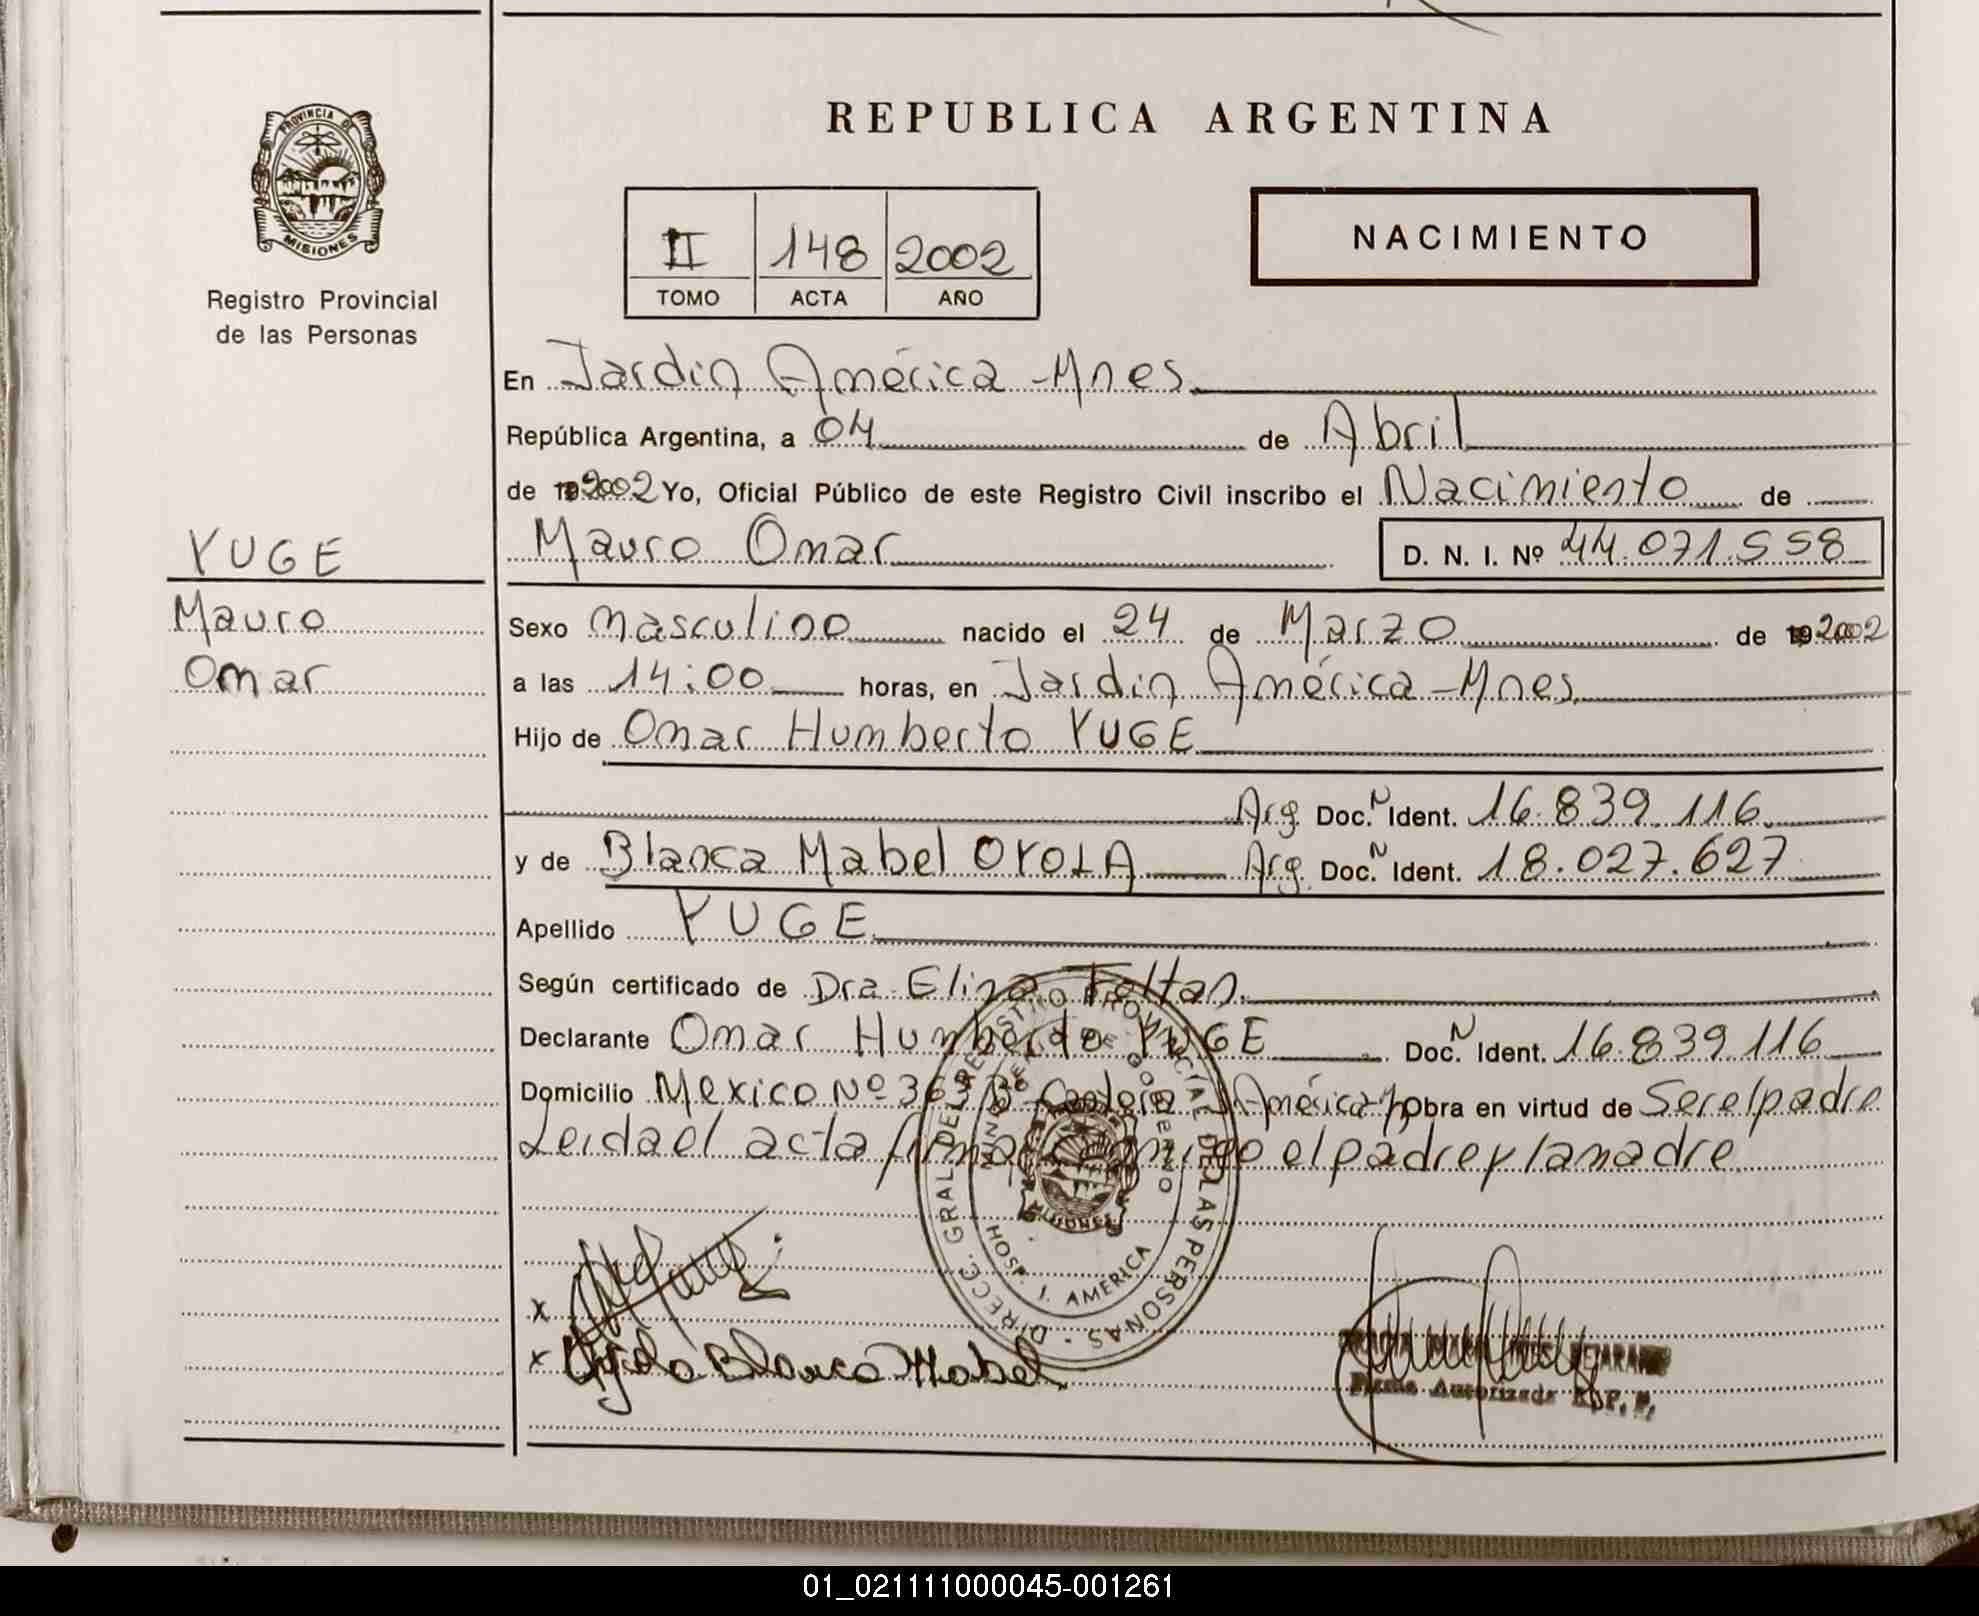 REPUBLICA ARGENTINA
PROVINCIA DE
MISIONES
Registro Provincial
de las Personas
II 148 2002
TOMO ACTA AÑO
NACIMIENTO
En Jardín América - Mnes.
República Argentina, a 04 de Abril
de 2002 Yo, Oficial Público de este Registro Civil inscribo el Nacimiento de
YUGE
Mauro
Omar
Mauro Omar D. N. I. Nº 44.071.558
Sexo masculino nacido el 24 de Marzo de 2002
a las 14:00 horas, en Jardín América - Mnes.
Hijo de Omar Humberto YUGE
Arg. Doc. N Ident. 16.839.116
y de Blanca Mabel OYOLA Arg. Doc. N Ident. 18.027.627
Apellido YUGE
Según certificado de Dra. Elina
Declarante Omar Humberto YUGE Doc. N Ident. 16.839.116
Domicilio Mexico Nº 363 Bº J. América, Obra en virtud de Ser el padre
Leida el acta firma conmigo el padre y la madre.
DIRECC. GRAL. DEL REGISTRO PROVINCIAL DE LAS PERSONAS
MINISTERIO DE GOBIERNO
MISIONES
HOSP. J. AMERICA
x
x Oyola Blanca Mabel
Firma Autorizada R.P.P.
01_021111000045-001261